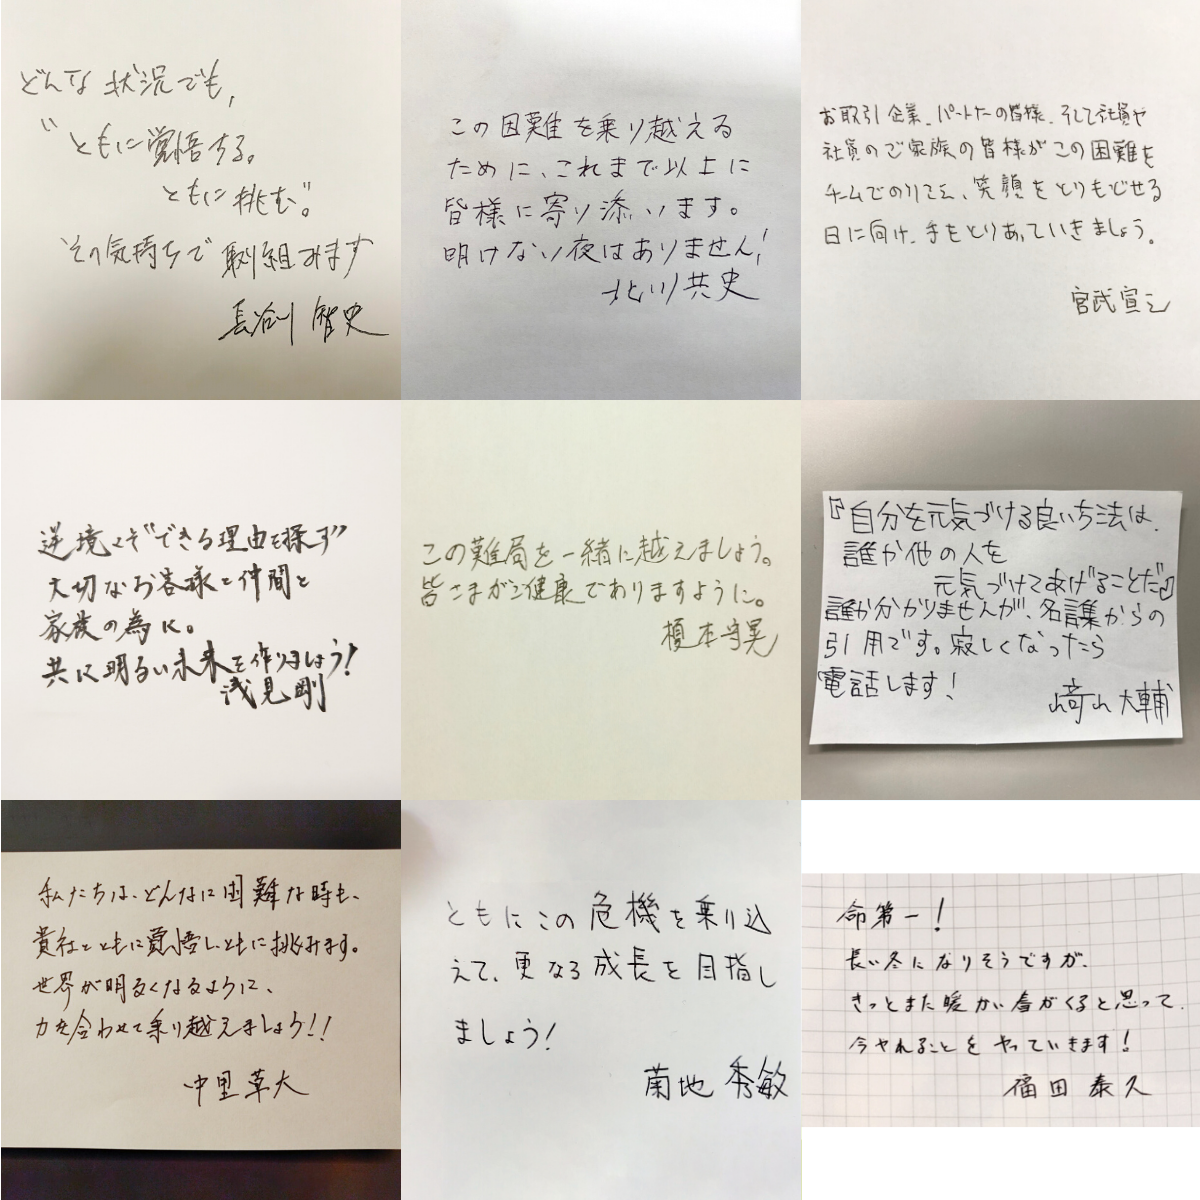 どんな状況でも,
"ともに覚悟する。
ともに挑む"。
その気持ちで取り組みます
長谷川 智史
この困難を乗り越える
ために、これまで以上に
皆様に寄り添います。
明けない夜はありません!
北川共史
お取引企業、パートナーの皆様、そして社員や
社員のご家族の皆様がこの困難を
チームでのりこえ、笑顔をとりもどせる
日に向け、手をとりあっていきましょう。
宮武宣之
逆境こそ"できる理由を探す"
大切なお客様と仲間と
家族の為に。
共に明るい未来を作りましょう!
浅見剛
この難局を一緒に越えましょう。
皆さまがご健康でありますように。
榎本守晃
『自分を元気づける良い方法は、
誰か他の人を
元気づけてあげることだ』
誰か分かりませんが、名言集からの
引用です。寂しくなったら
電話します!
﨑山大輔
私たちは、どんなに困難な時も、
貴社とともに覚悟し、ともに挑みます。
世界が明るくなるように、
力を合わせて乗り越えましょう!!
中里草大
ともにこの危機を乗り込
えて、更なる成長を目指し
ましょう!
菊地 秀敏
命第一!
長い冬になりそうですが、
きっとまた暖かい春がくると思って、
今やれることをやっていきます!
福田泰久